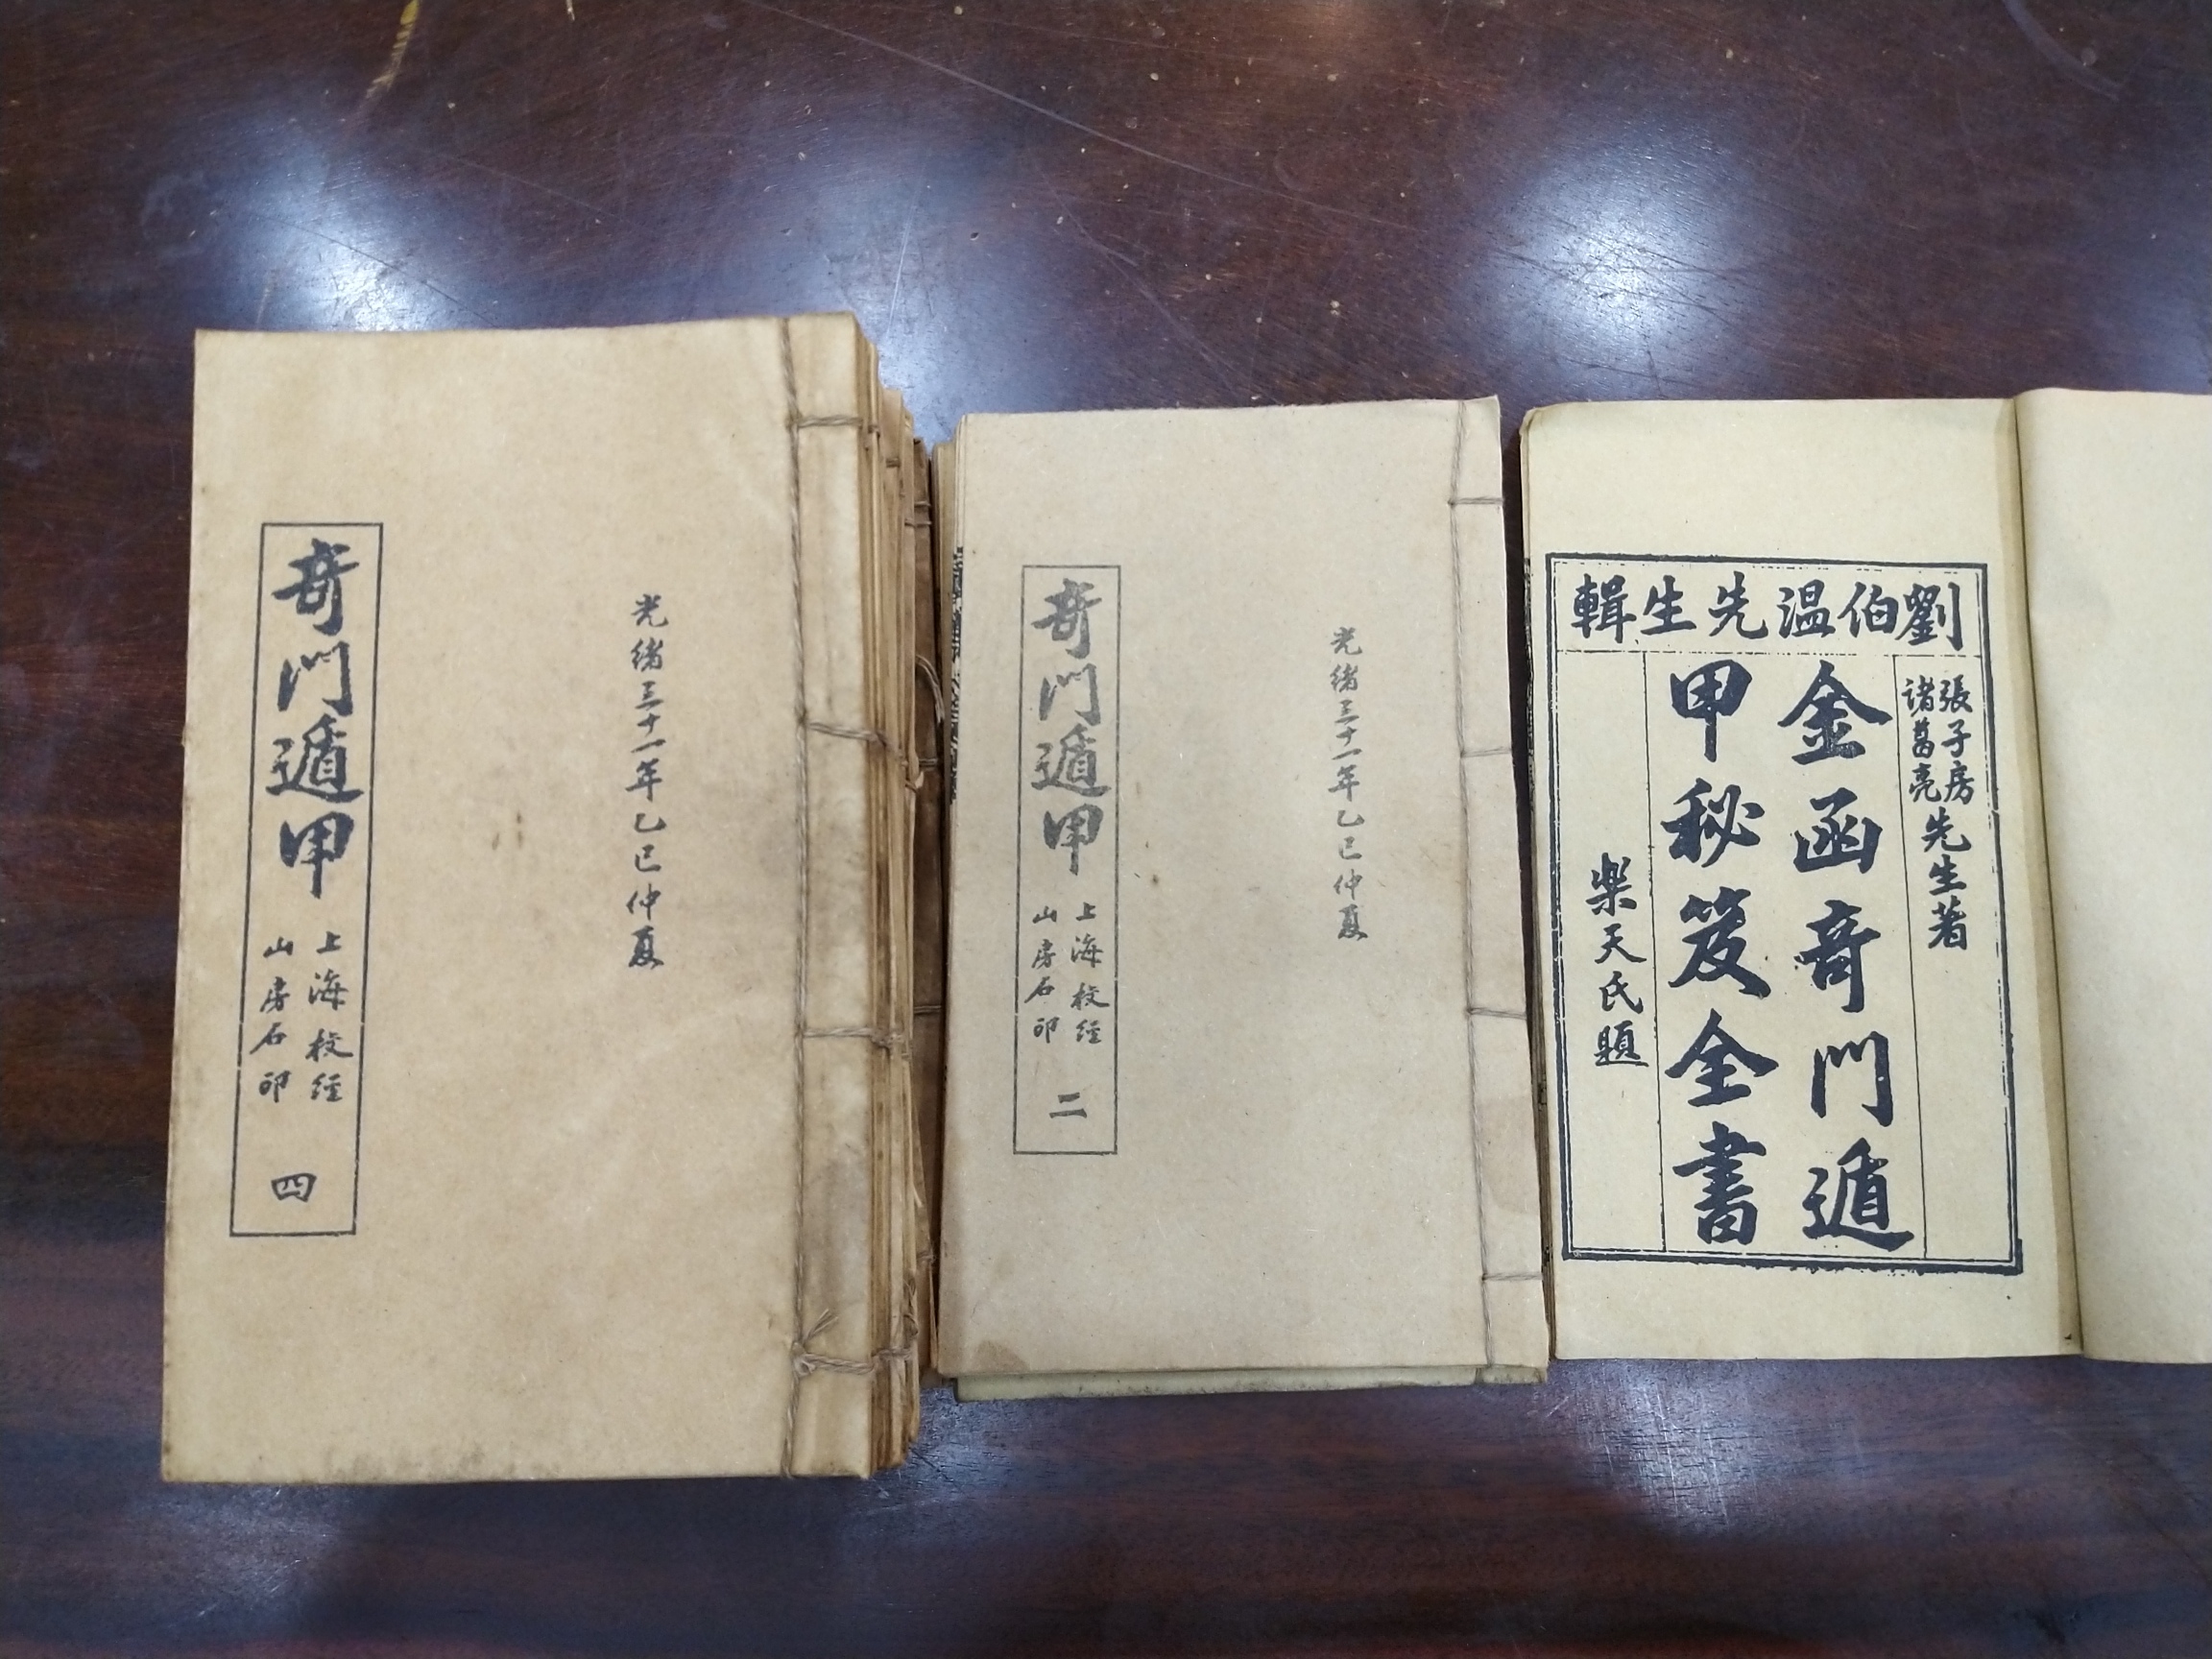 奇門遁甲
上海校經
山房石印
四
光緒三十一年乙巳仲夏
奇門遁甲
上海校經
山房石印
二
光緒三十一年乙巳仲夏
劉伯温先生輯
張子房
諸葛亮
先生著
金函奇門遁
甲秘笈全書
樂天氏題